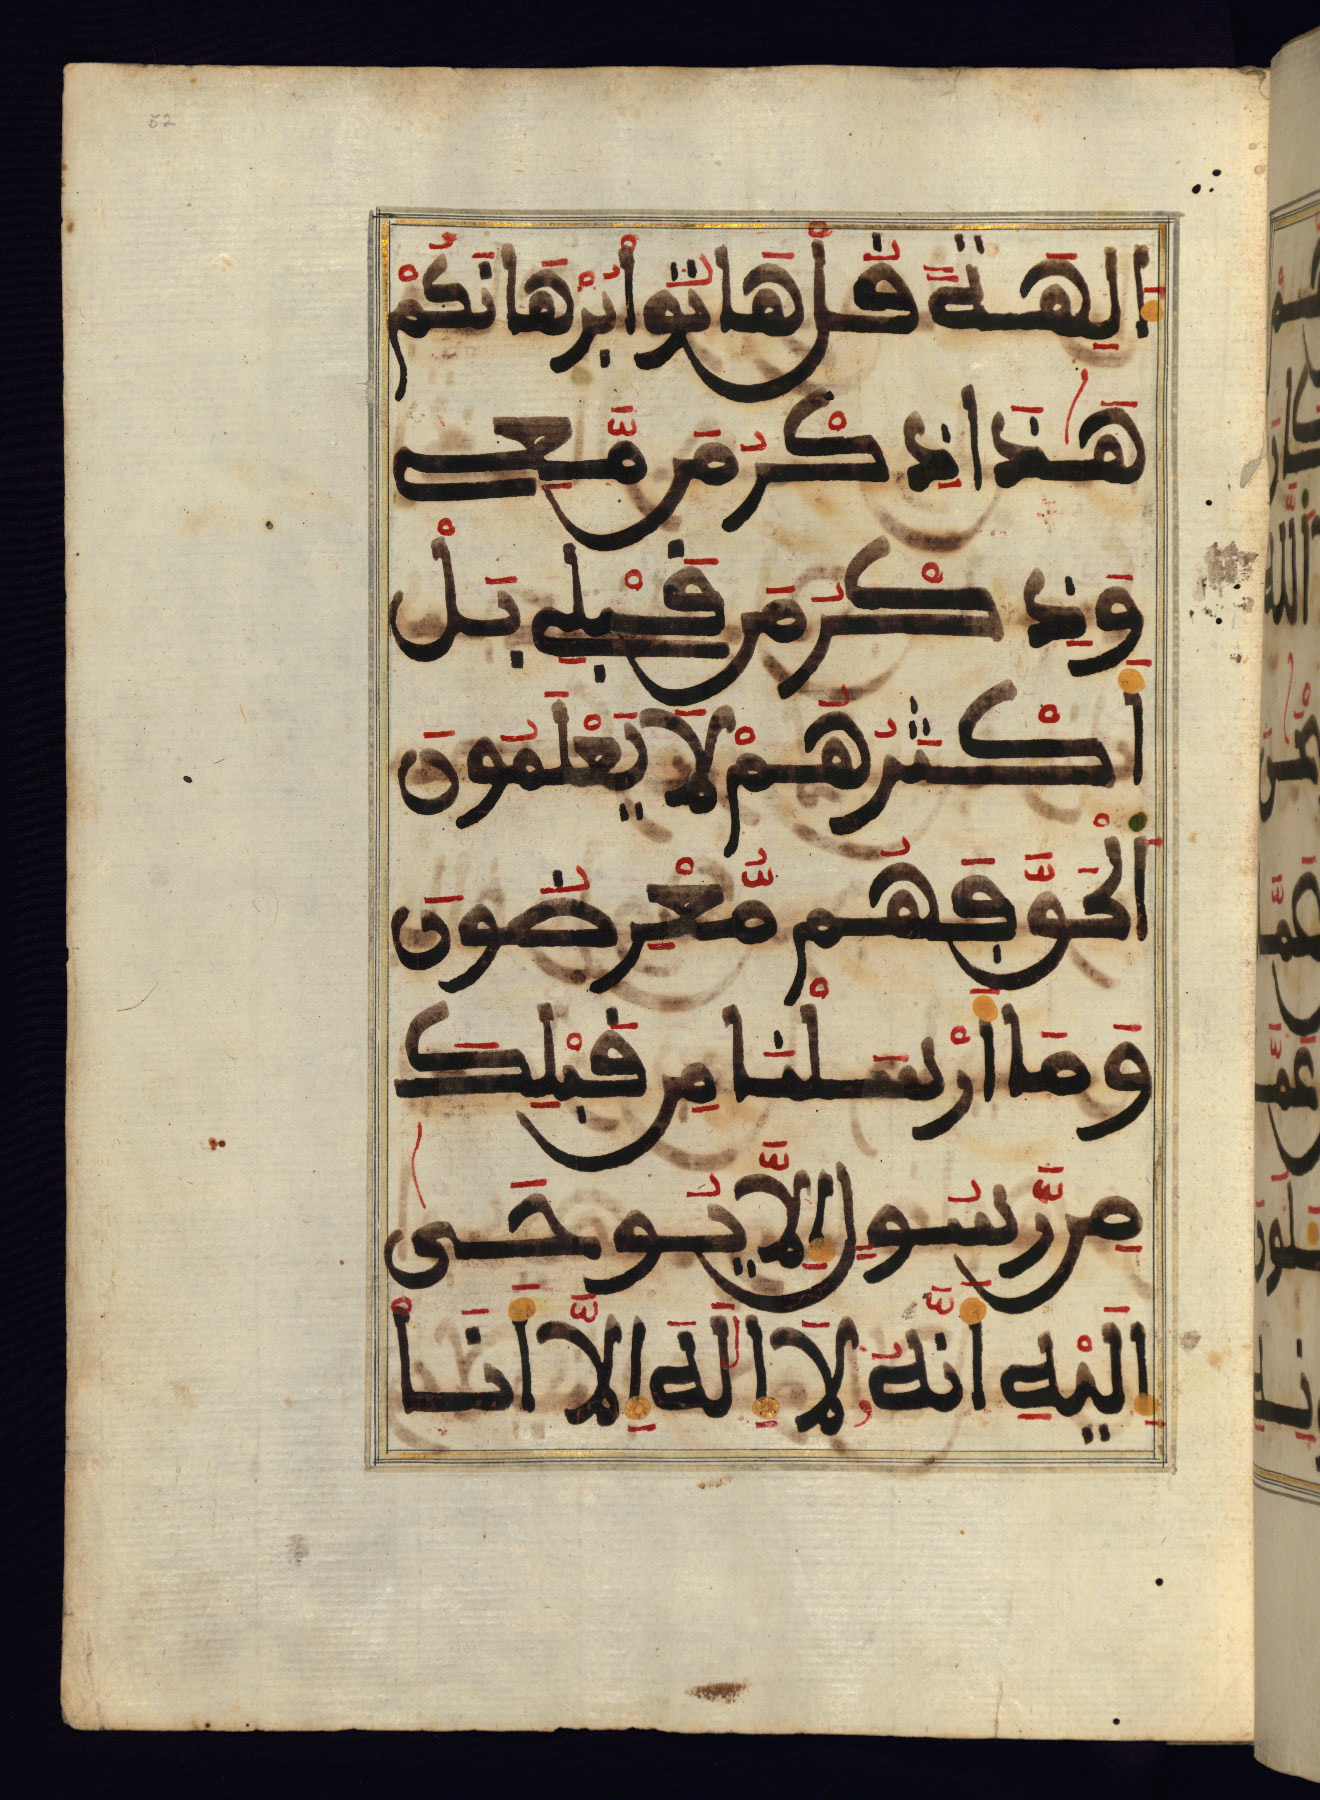 52
ءَالِهَةً قُلْ هَاتُواْ بُرْهَانَكُمْ
هَٰذَا ذِكْرُ مَن مَّعِى
وَذِكْرُ مَن قَبْلِى بَلْ
أَكْثَرُهُمْ لَا يَعْلَمُونَ
اَلْحَقَّ فَهُم مُّعْرِضُونَ
وَمَا أَرْسَلْنَا مِن قَبْلِكَ
مِن رَّسُولٍ إِلَّا يُوحَىٰ
إِلَيْهِ أَنَّهُ لَا إِلَٰهَ إِلَّا أَنَاْ